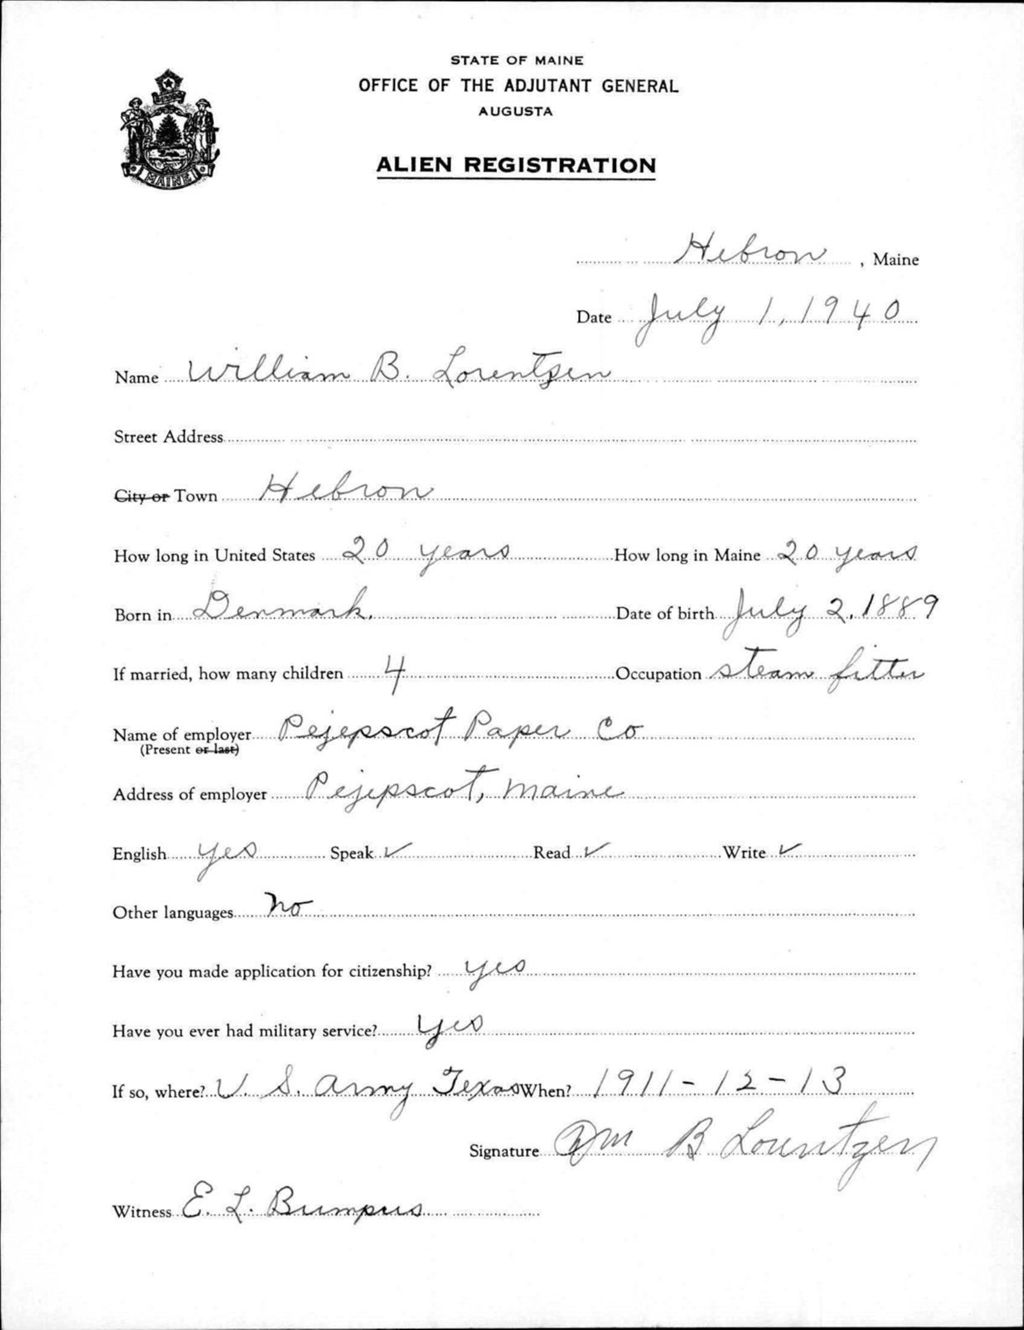 STATE OF MAINE
OFFICE OF THE ADJUTANT GENERAL
AUGUSTA
ALIEN REGISTRATION
MAINE
Hebron, Maine
Date July 1, 1940
Name William B. Lorentzen
Street Address
City or Town Hebron
How long in United States 20 years How long in Maine 20 years
Born in Denmark. Date of birth July 2, 1889
If married, how many children 4 Occupation steam fitter
Name of employer Pejepscot Paper Co
(Present or last)
Address of employer Pejepscot, Maine
English yes Speak ✓ Read ✓ Write ✓
Other languages No
Have you made application for citizenship? yes
Have you ever had military service? yes
If so, where? U. S. Army Texas When? 1911-12-13
Signature Wm B Lorentzen
Witness E. L. Bumpus